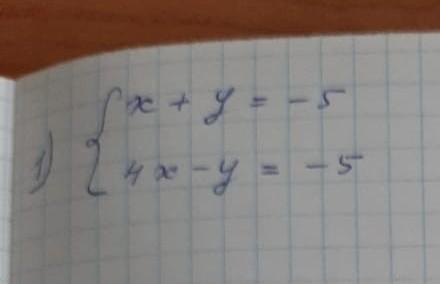 1) { x + y = -5
4x - y = -5